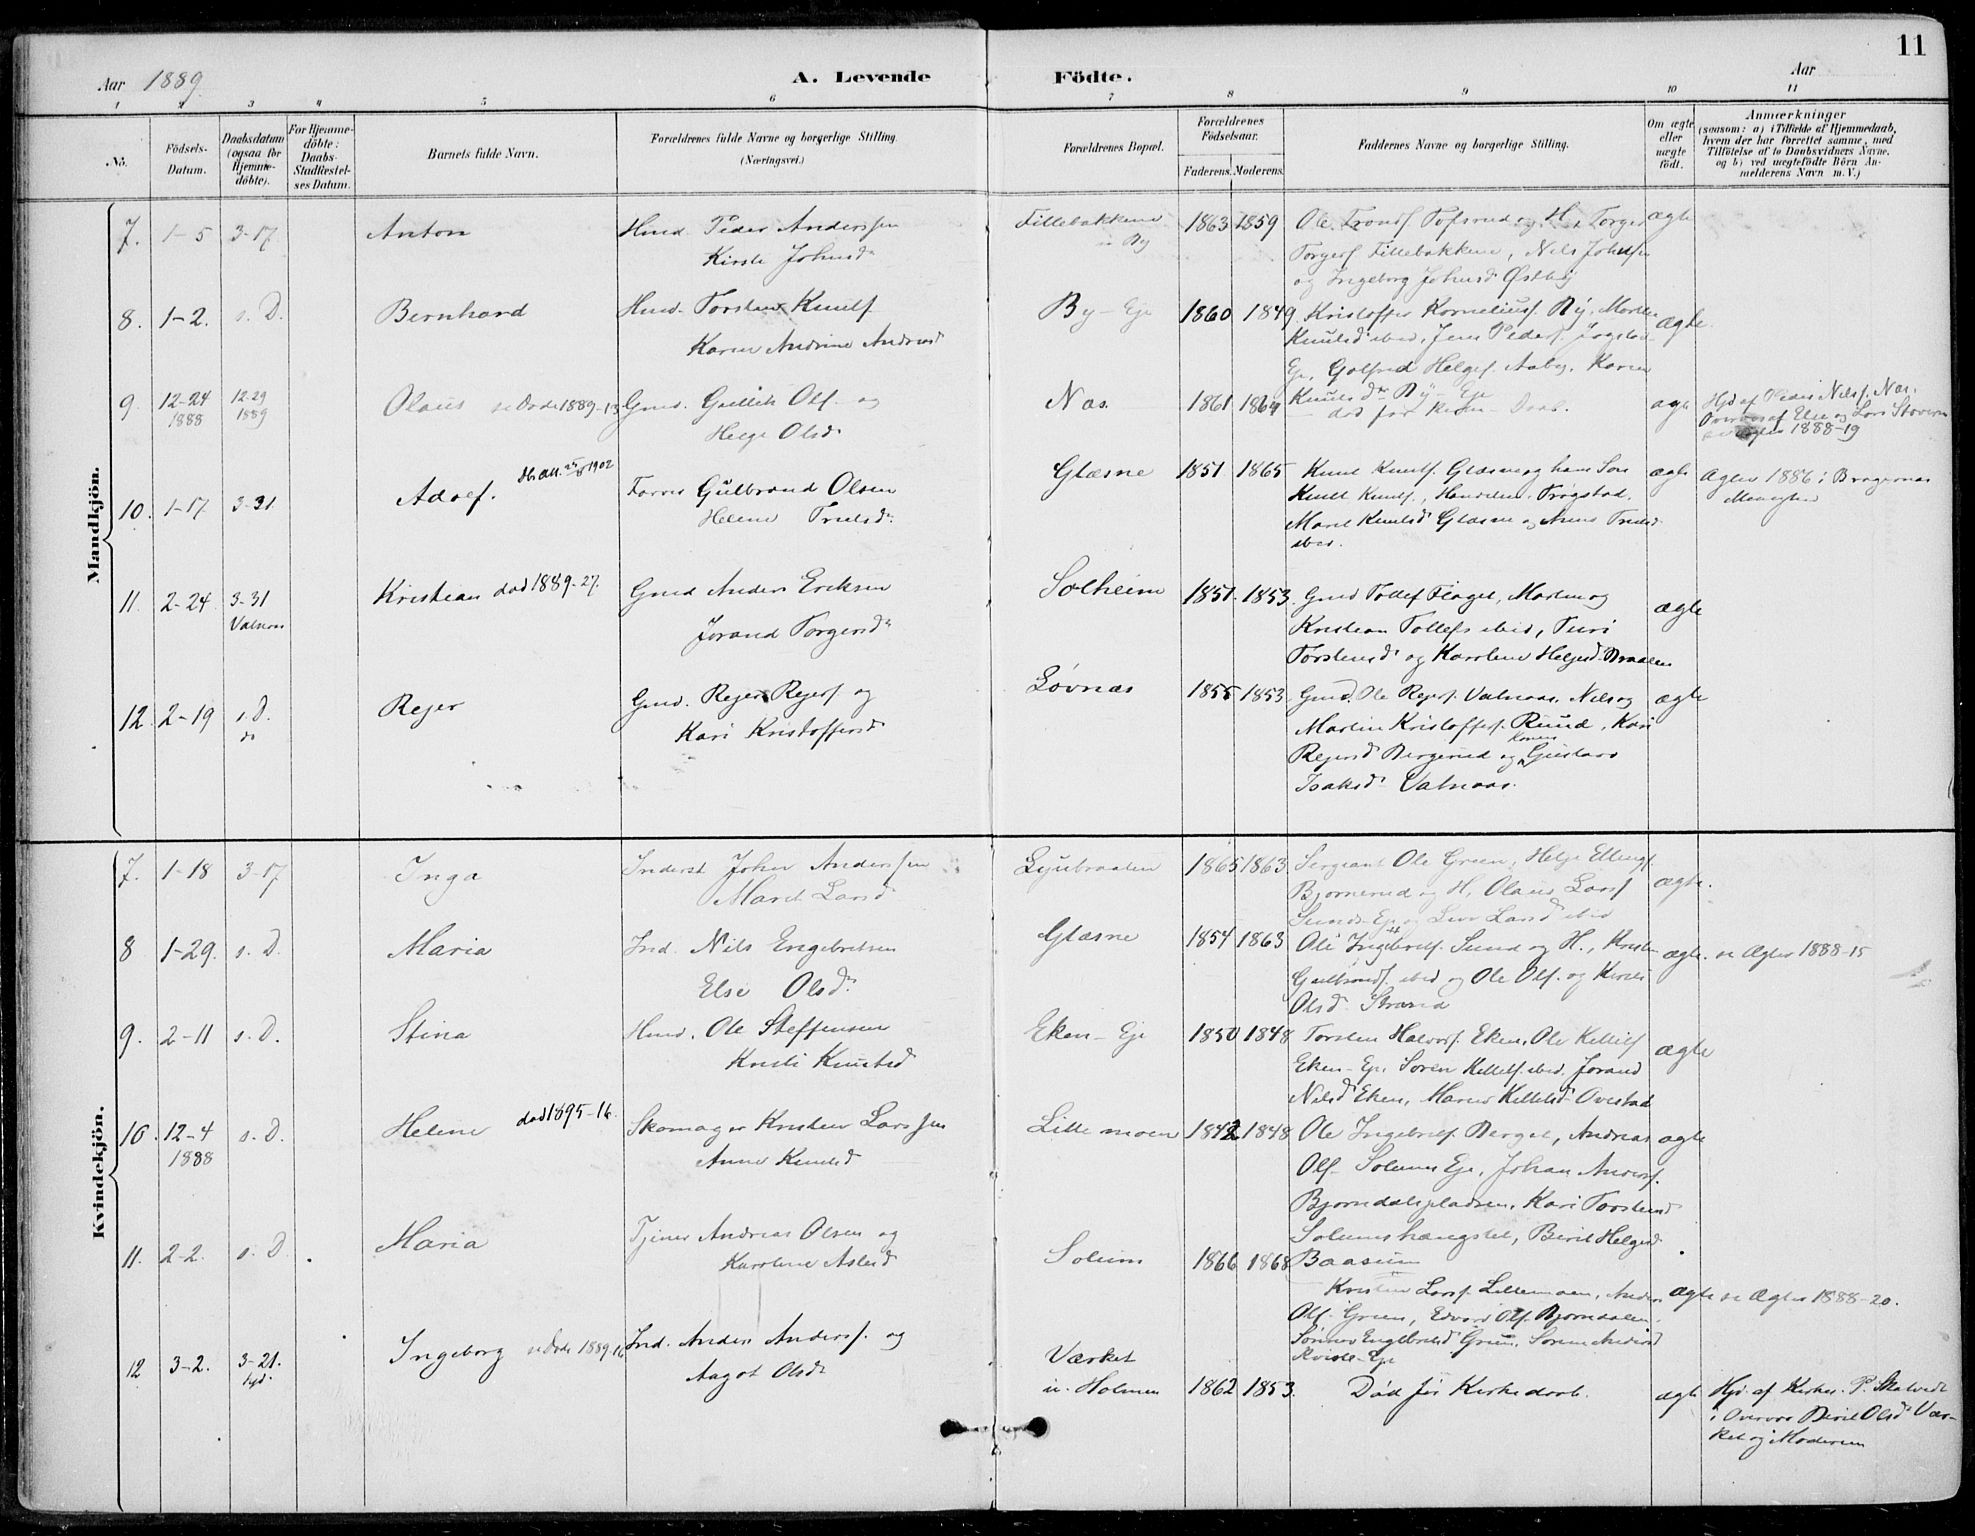 11
Aar 1889
A. Levende Födte.
Aar
1 2 3 4 5 6 7 8 9 10 11
No.
Födsels-Datum.
Daabsdatum (ogsaa for Hjemmedöbte).
For Hjemmedöbte: Daabs-Stadfæstelses Datum.
Barnets fulde Navn.
Forældrenes fulde Navne og borgerlige Stilling. (Næringsvei.)
Forældrenes Bopæl.
Forældrenes Födselsaar.
Faderens. Moderens.
Faddernes Navne og borgerlige Stilling.
Om ægte eller uægte født.
Anmærkninger
(saasom: a) i Tilfælde af Hjemmedaab, hvem der har forrettet samme, med Tilföielse af to Daabsvidners Navne, og b) ved uægtefödte Börn Anmelderens Navn m. V.)
Mandkjön.
7. 1-5 3-17 Anton Hmd. Peder Anderssen
Kirsti Johnsd. Fillebakkene u. By 1863 1859
Ole Tronds. Tofsrud og H., Torger
Torgers. Fillebakkene, Nils Johnsen
og Ingeborg Johnsd. Østby ægte
8. 1-2. s. D. Bernhard Hmd. Torsten Knuts.
Karen Andrine Andreasd. By-Eje 1860 1849
Kristoffer Kornelius. By, Marthe
Knutsd. ibid., Jens Peders.
Eje, Golfred Helges. Aaby, Karen
Knutsd. By-Eje ægte.
9. 12-24 1888 12-29 1889 Olaus se Døde 1889-13 Gmd. Gullik Ols. og
Helge Olsd. Næs. 1861 1864
død før Kirke-Daab. ægte
Hjd. af Peder Nils. Næs.
1888-19
10. 1-17 3-31 Adolf. 1902 Farver Gulbrand Olsen
Helene Trulsd. Glæsne 1851 1865
Knut Knuts. Glæsne og hans Søn
Knut Knuts., Trøgstad,
Marit Knutsd. Glæsne og Anne Trulsd.
ibid. ægte
Ægtev 1886 i Bragernæs
Menighed
11. 2-24 3-31 Valnæs Kristian død 1889-27. Gmd Anders Eriksen
Jørand Torgersd. Solheim 1851 1853.
Gmd Tollef Flaget, Martin og
Kristian Tollefs. ibid, Turi
Torstensd. og Karoline Helgesd. Braaten ægte
12. 2-19 s. D. Rejer Gmd. Rejer Rejers. og
Kari Kristoffersd. Løvnæs 1855 1853
Gmd. Ole Rejers. Valnæs, Nils og
Martin Kristoffers. Ruud, Kari
Rejersd. Bergerud og Konen Gustava
Isaksd. Valnæs. ægte
Kvindekjön.
7. 1-18 3-17 Inga Inderst Johan Anderssen
Marit Larsd. 1865 1863
Sergeant Ole Green, Helge Ellings.
Bjørnerud og H, Olaus Lars.
Sunds-Eje, Larsd. ibid ægte.
8 1-29. s. D. Maria Ind. Nils Engebretsen
Else Olsd. Glæsne 1854 1863
Ole Ingebrets. Sund og H.,
Gulbrands. ibid og Ole Ols. og Kirsti
Olsd. Strand ægte. se Ægtev 1888-15
9. 2-11 s. D. Stina Hmd. Ole Steffensen
Kirsti Knutsd. Eken-Eje 1850 1848
Torsten Halvors. Eken, Ole Kittils.
Eken-Eje, Søren Kittils. ibid. Jørand
Nilsd. Eken, Maren Kittilsd. Ovestad ægte
10. 12-4 1888 s. D. Helene død 1895-16. Skomager Kristen Larssen
Anne Knutsd. Lillemoen 1842 1848
Ole Ingebrets. Berget, Andreas
Ols. Solums Eje, Johan Anders.
Bjørndalspladsen, Kari Torstensd.
Solumshængslet, Berit Helgesd.
Baasum ægte
11. 2-2. s. D. Maria Tjener Andreas Olsen og
Karoline Aslesd. Solum 1866 1868
Kristen Lars. Lillemoen, Anders
Ols. Green, Edvard Ols. Bjørndalen,
Engebretsd. Green, Andersd.
Kviste-Eje ægte se Ægtev 1888-20.
12 3-2. 3-21. hjd. Ingeborg se Døde 1889 16 Ind. Anders Anders. og
Aagot Olsd. Værket u. Holmen 1862 1853.
Død før Kirkedaab. ægte
Hjd. af Kirkes. P. Skalvedt
i Overvær Berit Olsd. Vær-
ket og Moderen